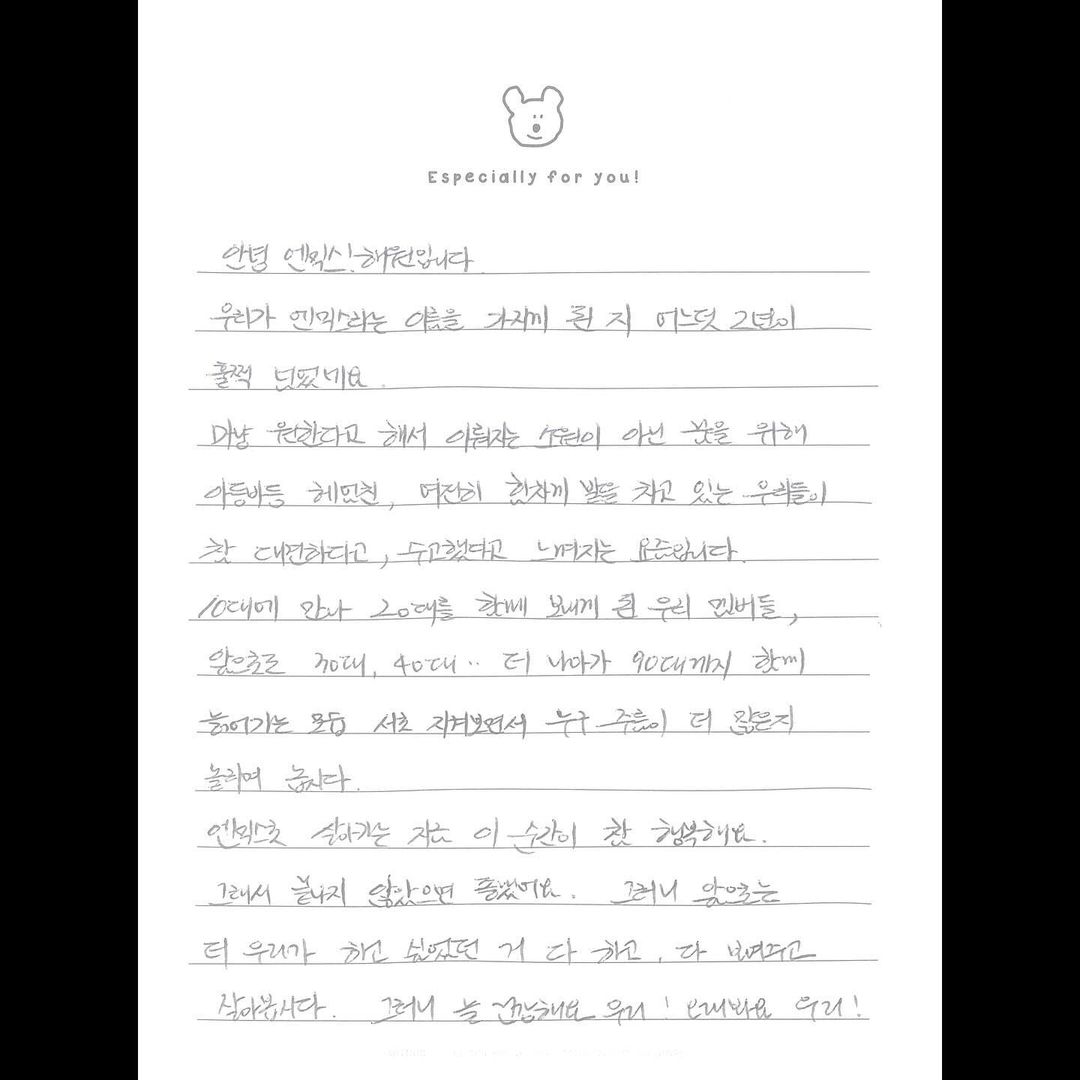 Especially for you!
안녕 엔믹스! 해원입니다
우리가 엔믹스라는 이름을 가지게 된 지 어느덧 2년이
훌쩍 넘었네요.
마냥 원한다고 해서 이뤄지는 소원이 아닌 꿈을 위해
아등바등 헤엄친, 여전히 힘차게 발을 차고 있는 우리들이
참 대견하다고, 수고했다고 느껴지는 요즘입니다.
10대에 만나 20대를 함께 보내게 된 우리 멤버들,
앞으로 30대, 40대.. 더 나아가 90대까지 함께
늙어가는 모습 서로 지켜보면서 누구 주름이 더 많은지
놀리며 놉시다.
엔믹스로 살아가는 지금 이 순간이 참 행복해요.
그래서 끝나지 않았으면 좋겠어요. 그러니 앞으로는
더 우리가 하고 싶었던 거 다 하고, 다 보여주고
살아봅시다. 그러니 늘 건강해요 우리! 오래봐요 우리!